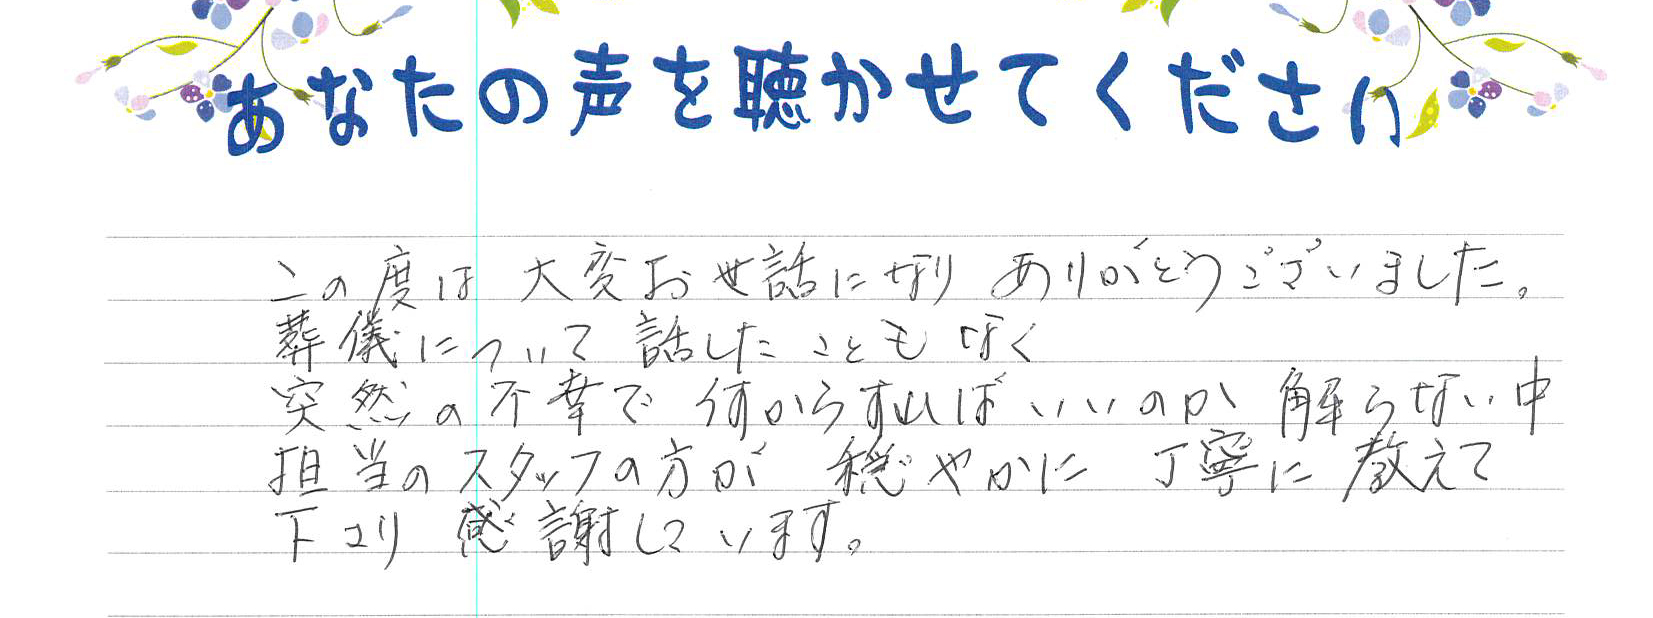 あなたの声を聴かせてください
この度は 大変お世話になり ありがとうございました。
葬儀について 話したことも なく
突然の不幸で 何からすればいいのか 解らない中
担当のスタッフの方が 穏やかに 丁寧に 教えて
下さり 感謝しています。